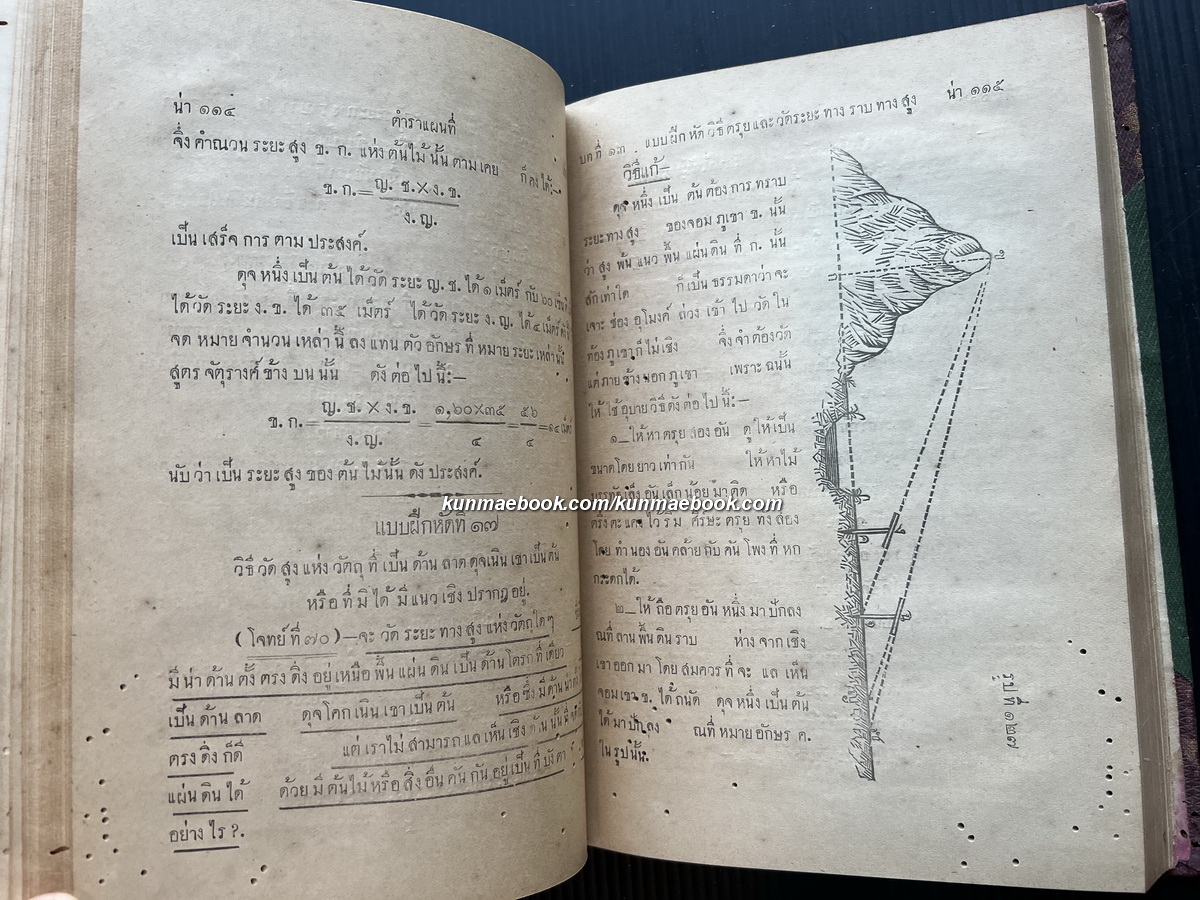 น่า ๑๑๔
ตำราแผนที่
จึ่ง คำณวน ระยะ สูง ข. ก. แห่ง ต้นไม้ นั้น ตาม เคย ก็ คง ได้:—
ข. ก.= ญ. ช.×ง. ข.
ง. ญ.
เป็น เสร็จ การ ตาม ประสงค์.
ดุจ หนึ่ง เป็น ต้น ได้ วัด ระยะ ญ. ช. ได้ ๑ เม็ตร์ กับ ๖๐
ได้ วัด ระยะ ง. ข. ได้ ๓๕ เม็ตร์ ได้ วัด ระยะ ง. ญ. ได้ ๔ เม็ตร์
จด หมาย จำนวน เหล่า นี้ ลง แทน ตัว อักษร ที่ หมาย ระยะ เหล่า นั้น
สูตร จัตุรางศ์ ข้าง บน นั้น ดัง ต่อ ไป นี้:—
ข. ก.= ญ. ช. × ง. ข. = ๑,๖๐×๓๕ = ๕๖ =๑๔
ง. ญ. ๔ ๔
นับ ว่า เป็น ระยะ สูง ของ ต้น ไม้ นั้น ดัง ประสงค์.
แบบฝึกหัดที่ ๑๗
วิธี วัด สูง แห่ง วัตถุ ที่ เป็น ด้าน ลาด ดุจ เนิน เขา เป็น ต้น
หรือ ที่ มิ ได้ มี แนว เชิง ปรากฏ อยู่.
(โจทย์ ที่ ๗๐)—จะ วัด ระยะ ทาง สูง แห่ง วัตถุ ใด ๆ
มี น่า ด้าน ตั้ง ตรง ดิ่ง อยู่ เหนือ พื้น แผ่น ดิน เป็น ด้าน โตรก ที่ เดียว
เป็น ด้าน ลาด ดุจ โคก เนิน เขา เป็น ต้น หรือ ซึ่ง มี ด้าน น่า
ตรง ดิ่ง ก็ดี แต่ เราไม่ สามารถ แล เห็น เชิง ด้าน นั้น
แผ่น ดิน ได้ ด้วย มี ต้น ไม้ หรือ สิ่ง อื่น คั่น กัน อยู่ เป็น ที่ บัง ตา
อย่าง ไร ?.
น่า ๑๑๕
บท ที่ ๑๓ . แบบ ฝึก หัด วิธี ตรุย และ วัด ระยะ ทาง ราบ ทาง สูง
วิธี แก้—
ดุจ หนึ่ง เป็น ต้น ต้อง การ ทราบ
ระยะ ทาง สูง ของ จอม ภูเขา ข. นั้น
ว่า สูง พ้น แนว พื้น แผ่น ดิน ที่ ก. นั้น
สัก เท่า ใด ก็ เป็น ธรรมดา ว่า จะ
เจาะ ช่อง อุโมงค์ ล่วง เข้า ไป วัด ใน
ท้อง ภูเขา ก็ ไม่ เชิง จึ่ง จำ ต้อง วัด
แต่ ภาย ข้าง นอก ภูเขา เพราะ ฉนั้น
ให้ ใช้ อุบาย วิธี ดัง ต่อ ไป นี้:—
๑—ให้ หา ตรุย สอง อัน ดู ให้ เป็น
ขนาด โดย ยาว เท่า กัน ให้ หา ไม้
บรรทัด เล็ง อัน เล็ก น้อย มา ติด หรือ
ตรึง ตะ แคง ไว้ ริม ศีร์ษะ ตรุย ทั้ง สอง
โดย ทำ นอง อัน คล้าย กับ คัน โพง ที่ หก
กระดก ได้.
๒—ให้ ถือ ตรุย อัน หนึ่ง มา ปัก ลง
ณที่ ลาน พื้น ดิน ราบ ห่าง จาก เชิง
เขา ออก มา โดย สมควร ที่ จะ แล เห็น
จอม เขา ข. ได้ ถนัด ดุจ หนึ่ง เป็น ต้น
ได้ มา ปัก ลง ณที่ หมาย อักษร ค.
ใน รูป นั้น.
รูป ที่ ๑๒๗
kunmaebook.com/kunmaebook.com